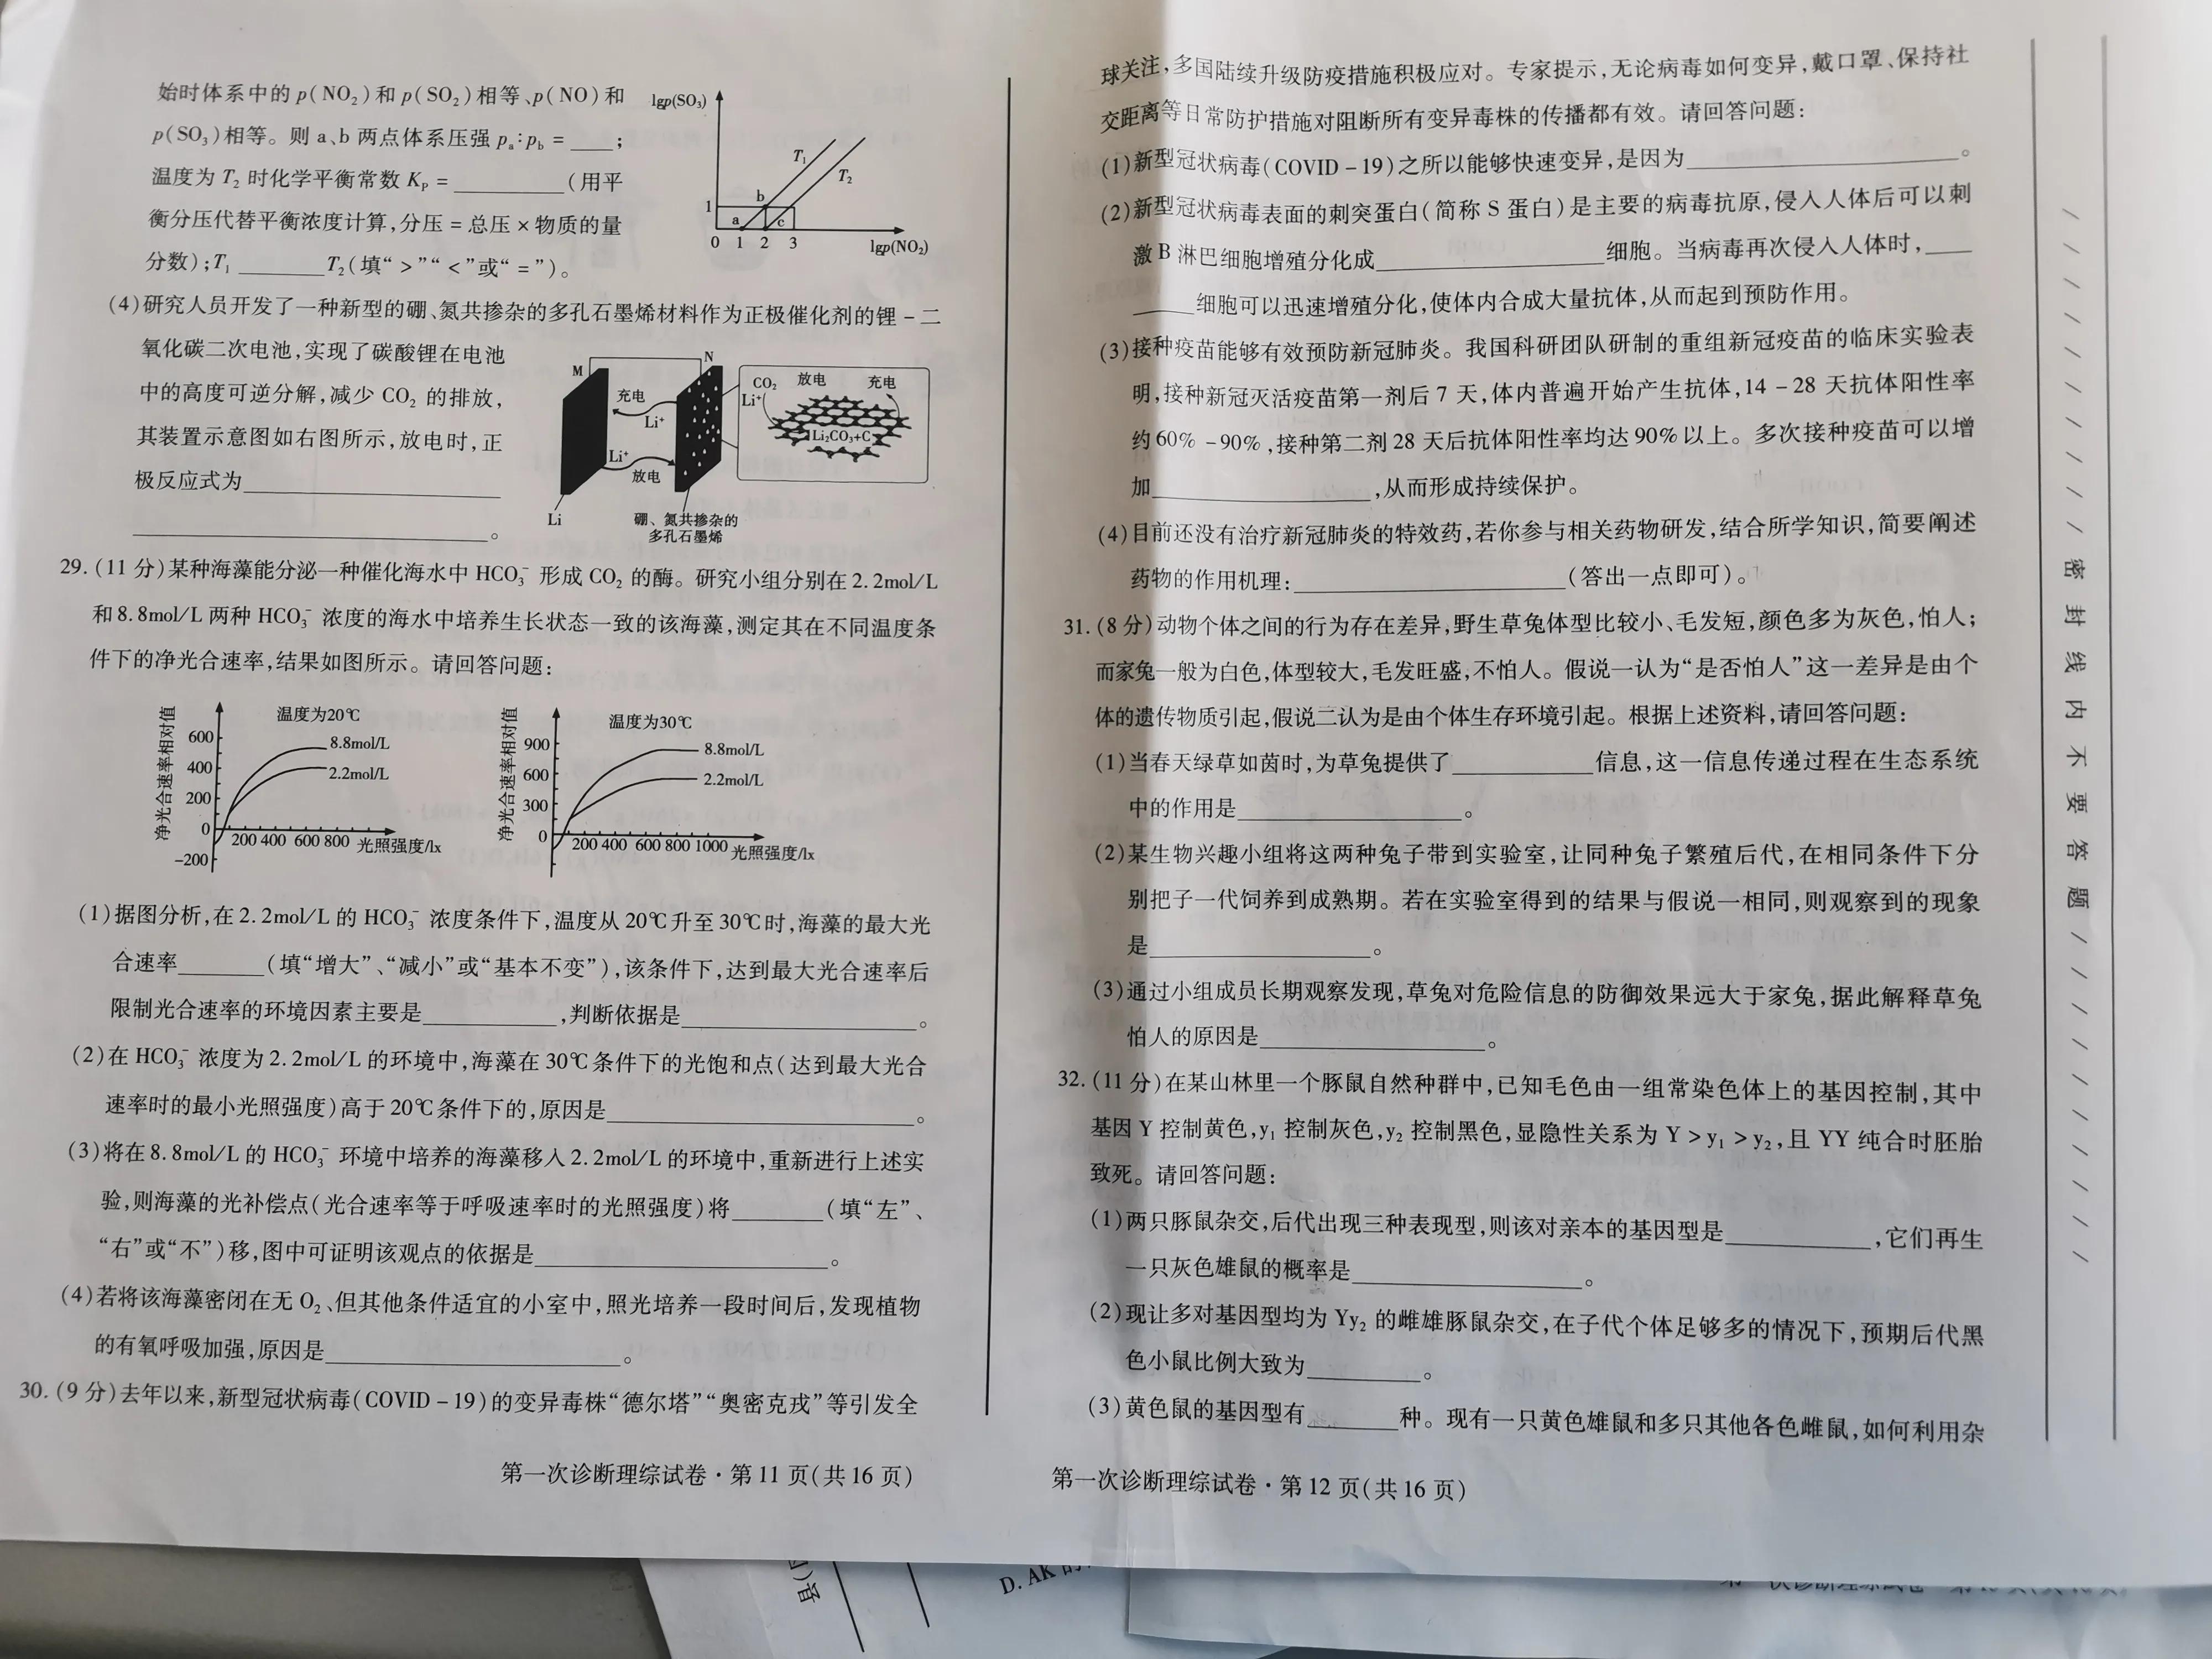 始时体系中的 p(NO₂)和 p(SO₂)相等、p(NO)和
p(SO₃)相等。则 a、b 两点体系压强 pₐ∶p_b = ____;
温度为 T₂ 时化学平衡常数 K_P = __________(用平
衡分压代替平衡浓度计算,分压 = 总压 × 物质的量
分数);T₁ ________T₂(填“>”“<”或“=”)。
lgp(SO₃)
T₁
T₂
b
1
a
c
0 1 2 3
lgp(NO₂)
(4)研究人员开发了一种新型的硼、氮共掺杂的多孔石墨烯材料作为正极催化剂的锂-二
氧化碳二次电池,实现了碳酸锂在电池
中的高度可逆分解,减少 CO₂ 的排放,
其装置示意图如右图所示,放电时,正
极反应式为________________________
________________________________。
M
N
充电
Li⁺
Li⁺
放电
Li
硼、氮共掺杂的
多孔石墨烯
CO₂ 放电 充电
Li⁺
Li₂CO₃+C
29. (11 分)某种海藻能分泌一种催化海水中 HCO₃⁻ 形成 CO₂ 的酶。研究小组分别在 2.2mol/L
和 8.8mol/L 两种 HCO₃⁻ 浓度的海水中培养生长状态一致的该海藻,测定其在不同温度条
件下的净光合速率,结果如图所示。请回答问题:
净光合速率相对值
温度为20℃
600
400
200
0
-200
8.8mol/L
2.2mol/L
200 400 600 800 光照强度/lx
净光合速率相对值
温度为30℃
900
600
300
0
8.8mol/L
2.2mol/L
200 400 600 800 1000 光照强度/lx
(1)据图分析,在 2.2mol/L 的 HCO₃⁻ 浓度条件下,温度从 20℃升至 30℃时,海藻的最大光
合速率________(填“增大”、“减小”或“基本不变”),该条件下,达到最大光合速率后
限制光合速率的环境因素主要是____________,判断依据是______________________。
(2)在 HCO₃⁻ 浓度为 2.2mol/L 的环境中,海藻在 30℃条件下的光饱和点(达到最大光合
速率时的最小光照强度)高于 20℃条件下的,原因是____________________________。
(3)将在 8.8mol/L 的 HCO₃⁻ 环境中培养的海藻移入 2.2mol/L 的环境中,重新进行上述实
验,则海藻的光补偿点(光合速率等于呼吸速率时的光照强度)将________(填“左”、
“右”或“不”)移,图中可证明该观点的依据是__________________________。
(4)若将该海藻密闭在无 O₂、但其他条件适宜的小室中,照光培养一段时间后,发现植物
的有氧呼吸加强,原因是__________________________。
30. (9 分)去年以来,新型冠状病毒(COVID-19)的变异毒株“德尔塔”“奥密克戎”等引发全
第一次诊断理综试卷·第 11 页(共 16 页)
球关注,多国陆续升级防疫措施积极应对。专家提示,无论病毒如何变异,戴口罩、保持社
交距离等日常防护措施对阻断所有变异毒株的传播都有效。请回答问题:
(1)新型冠状病毒(COVID-19)之所以能够快速变异,是因为________________________。
(2)新型冠状病毒表面的刺突蛋白(简称 S 蛋白)是主要的病毒抗原,侵入人体后可以刺
激 B 淋巴细胞增殖分化成____________________细胞。当病毒再次侵入人体时,____
______细胞可以迅速增殖分化,使体内合成大量抗体,从而起到预防作用。
(3)接种疫苗能够有效预防新冠肺炎。我国科研团队研制的重组新冠疫苗的临床实验表
明,接种新冠灭活疫苗第一剂后 7 天,体内普遍开始产生抗体,14-28 天抗体阳性率
约 60%-90%,接种第二剂 28 天后抗体阳性率均达 90% 以上。多次接种疫苗可以增
加____________________,从而形成持续保护。
(4)目前还没有治疗新冠肺炎的特效药,若你参与相关药物研发,结合所学知识,简要阐述
药物的作用机理:________________________(答出一点即可)。
31. (8 分)动物个体之间的行为存在差异,野生草兔体型比较小、毛发短,颜色多为灰色,怕人;
而家兔一般为白色,体型较大,毛发旺盛,不怕人。假说一认为“是否怕人”这一差异是由个
体的遗传物质引起,假说二认为是由个体生存环境引起。根据上述资料,请回答问题:
(1)当春天绿草如茵时,为草兔提供了____________信息,这一信息传递过程在生态系统
中的作用是____________________。
(2)某生物兴趣小组将这两种兔子带到实验室,让同种兔子繁殖后代,在相同条件下分
别把子一代饲养到成熟期。若在实验室得到的结果与假说一相同,则观察到的现象
是____________________。
(3)通过小组成员长期观察发现,草兔对危险信息的防御效果远大于家兔,据此解释草兔
怕人的原因是____________________。
32. (11 分)在某山林里一个豚鼠自然种群中,已知毛色由一组常染色体上的基因控制,其中
基因 Y 控制黄色,y₁ 控制灰色,y₂ 控制黑色,显隐性关系为 Y>y₁>y₂,且 YY 纯合时胚胎
致死。请回答问题:
(1)两只豚鼠杂交,后代出现三种表现型,则该对亲本的基因型是____________,它们再生
一只灰色雄鼠的概率是____________________。
(2)现让多对基因型均为 Yy₂ 的雌雄豚鼠杂交,在子代个体足够多的情况下,预期后代黑
色小鼠比例大致为__________。
(3)黄色鼠的基因型有________种。现有一只黄色雄鼠和多只其他各色雌鼠,如何利用杂
第一次诊断理综试卷·第 12 页(共 16 页)
密封线内不要答题
D. AK